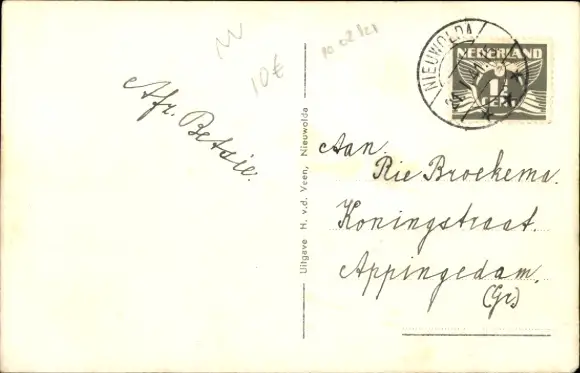 10€
NIEUWOLDA
NEDERLAND
1½
CENT
Afz. Betsie.
Uitgave H. v.d. Veen, Nieuwolda
Aan.
Rie Broekema.
Koningstraat.
Appingedam.
(Gr)